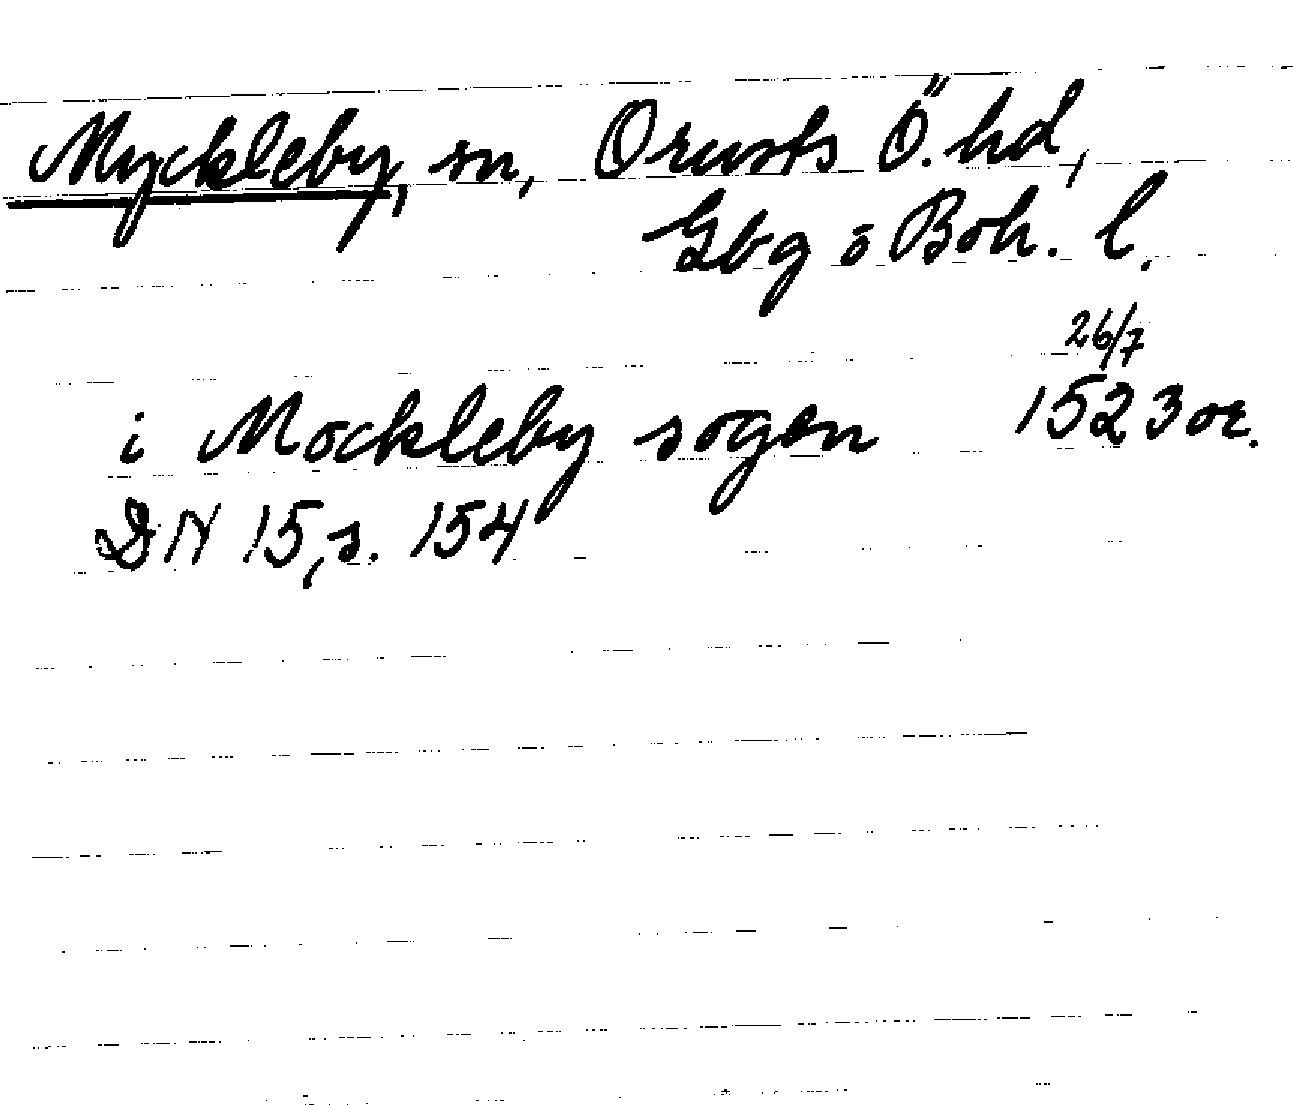 Myckleby, sn, Orusts Ö. hd,
Gbg o Boh. l.
26/7
i Mockleby sogen 1523 or.
DN 15, s. 154